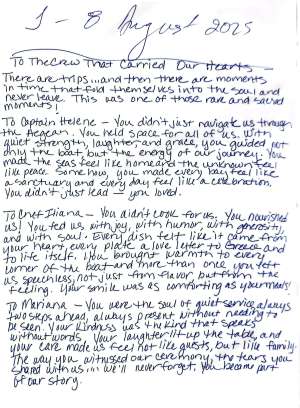 1 - 8 August 2025
To The Crew That Carried Our Hearts -
There are trips... and then there are moments
in time that fold themselves into the soul and
never leave. This was one of those rare and sacred
moments!
To Captain Helene - You didn't just navigate us through
the Aegean. You held space for all of us. With
quiet strength, laughter, and grace, you guided not
only the boat, but the energy of our journey. You
made the seas feel like home and the unknown feel
like peace. Somehow, you made every bay feel like
a sanctuary and every day feel like a celebration.
You didn't just lead - you loved.
To Chef Iliana - You didn't cook for us. You nourished
us! You fed us with joy, with humor, with generosity,
and with soul. Every dish felt like it came from
your heart, every plate a love letter to Greece and
to life itself. You brought warmth to every
corner of the boat and more than once you left
us speechless, not just from flavor, but from the
feeling. Your smile was as comforting as your meals!
To Mariana - You were the soul of quiet service, always
two steps ahead, always present without needing to
be seen. Your kindness was the kind that speaks
without words. Your laughter lit up the table, and
your care made us feel not like guests, but like family.
The way you witnessed our ceremony, the tears you
shared with us... we'll never forget. You became part
of our story.